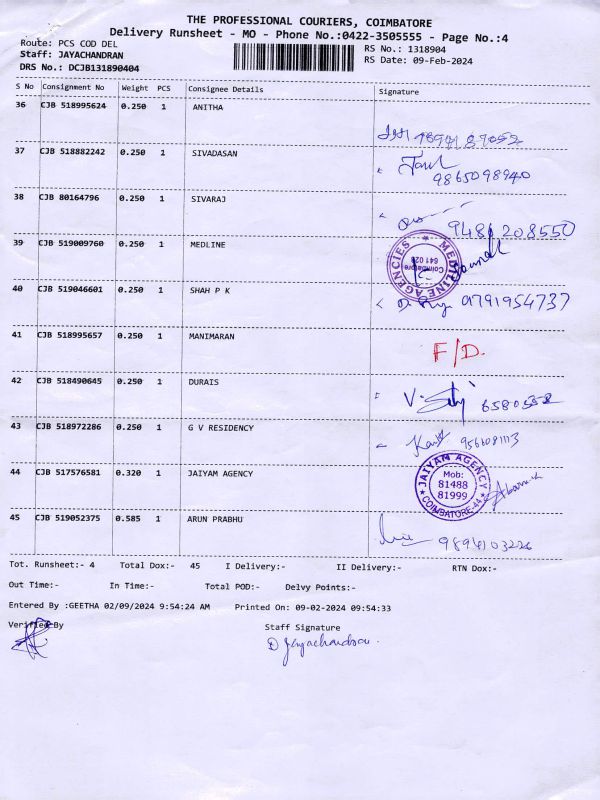 THE PROFESSIONAL COURIERS, COIMBATORE
Delivery Runsheet - MO - Phone No.:0422-3505555 - Page No.:4
Route: PCS COD DEL
RS No.: 1318904
Staff: JAYACHANDRAN
RS Date: 09-Feb-2024
DRS No.: DCJB131890404
S No Consignment No Weight PCS Consignee Details Signature
36 CJB 518995624 0.250 1 ANITHA
37 CJB 518882242 0.250 1 SIVADASAN
9865098940
38 CJB 80164796 0.250 1 SIVARAJ
9486208550
39 CJB 519009760 0.250 1 MEDLINE
MEDILINE AGENCIES
Coimbatore
641 028
40 CJB 519046601 0.250 1 SHAH P K
9791954737
41 CJB 518995657 0.250 1 MANIMARAN
F/D.
42 CJB 518490645 0.250 1 DURAIS
6580558
43 CJB 518972286 0.250 1 G V RESIDENCY
9566081113
44 CJB 517576581 0.320 1 JAIYAM AGENCY
JAIYAM AGENCY
Mob:
81488
81999
COIMBATORE-44
45 CJB 519052375 0.585 1 ARUN PRABHU
9894103226
Tot. Runsheet:- 4 Total Dox:- 45 I Delivery:- II Delivery:- RTN Dox:-
Out Time:- In Time:- Total POD:- Delvy Points:-
Entered By :GEETHA 02/09/2024 9:54:24 AM Printed On: 09-02-2024 09:54:33
Verified By Staff Signature
D Jayachandran.